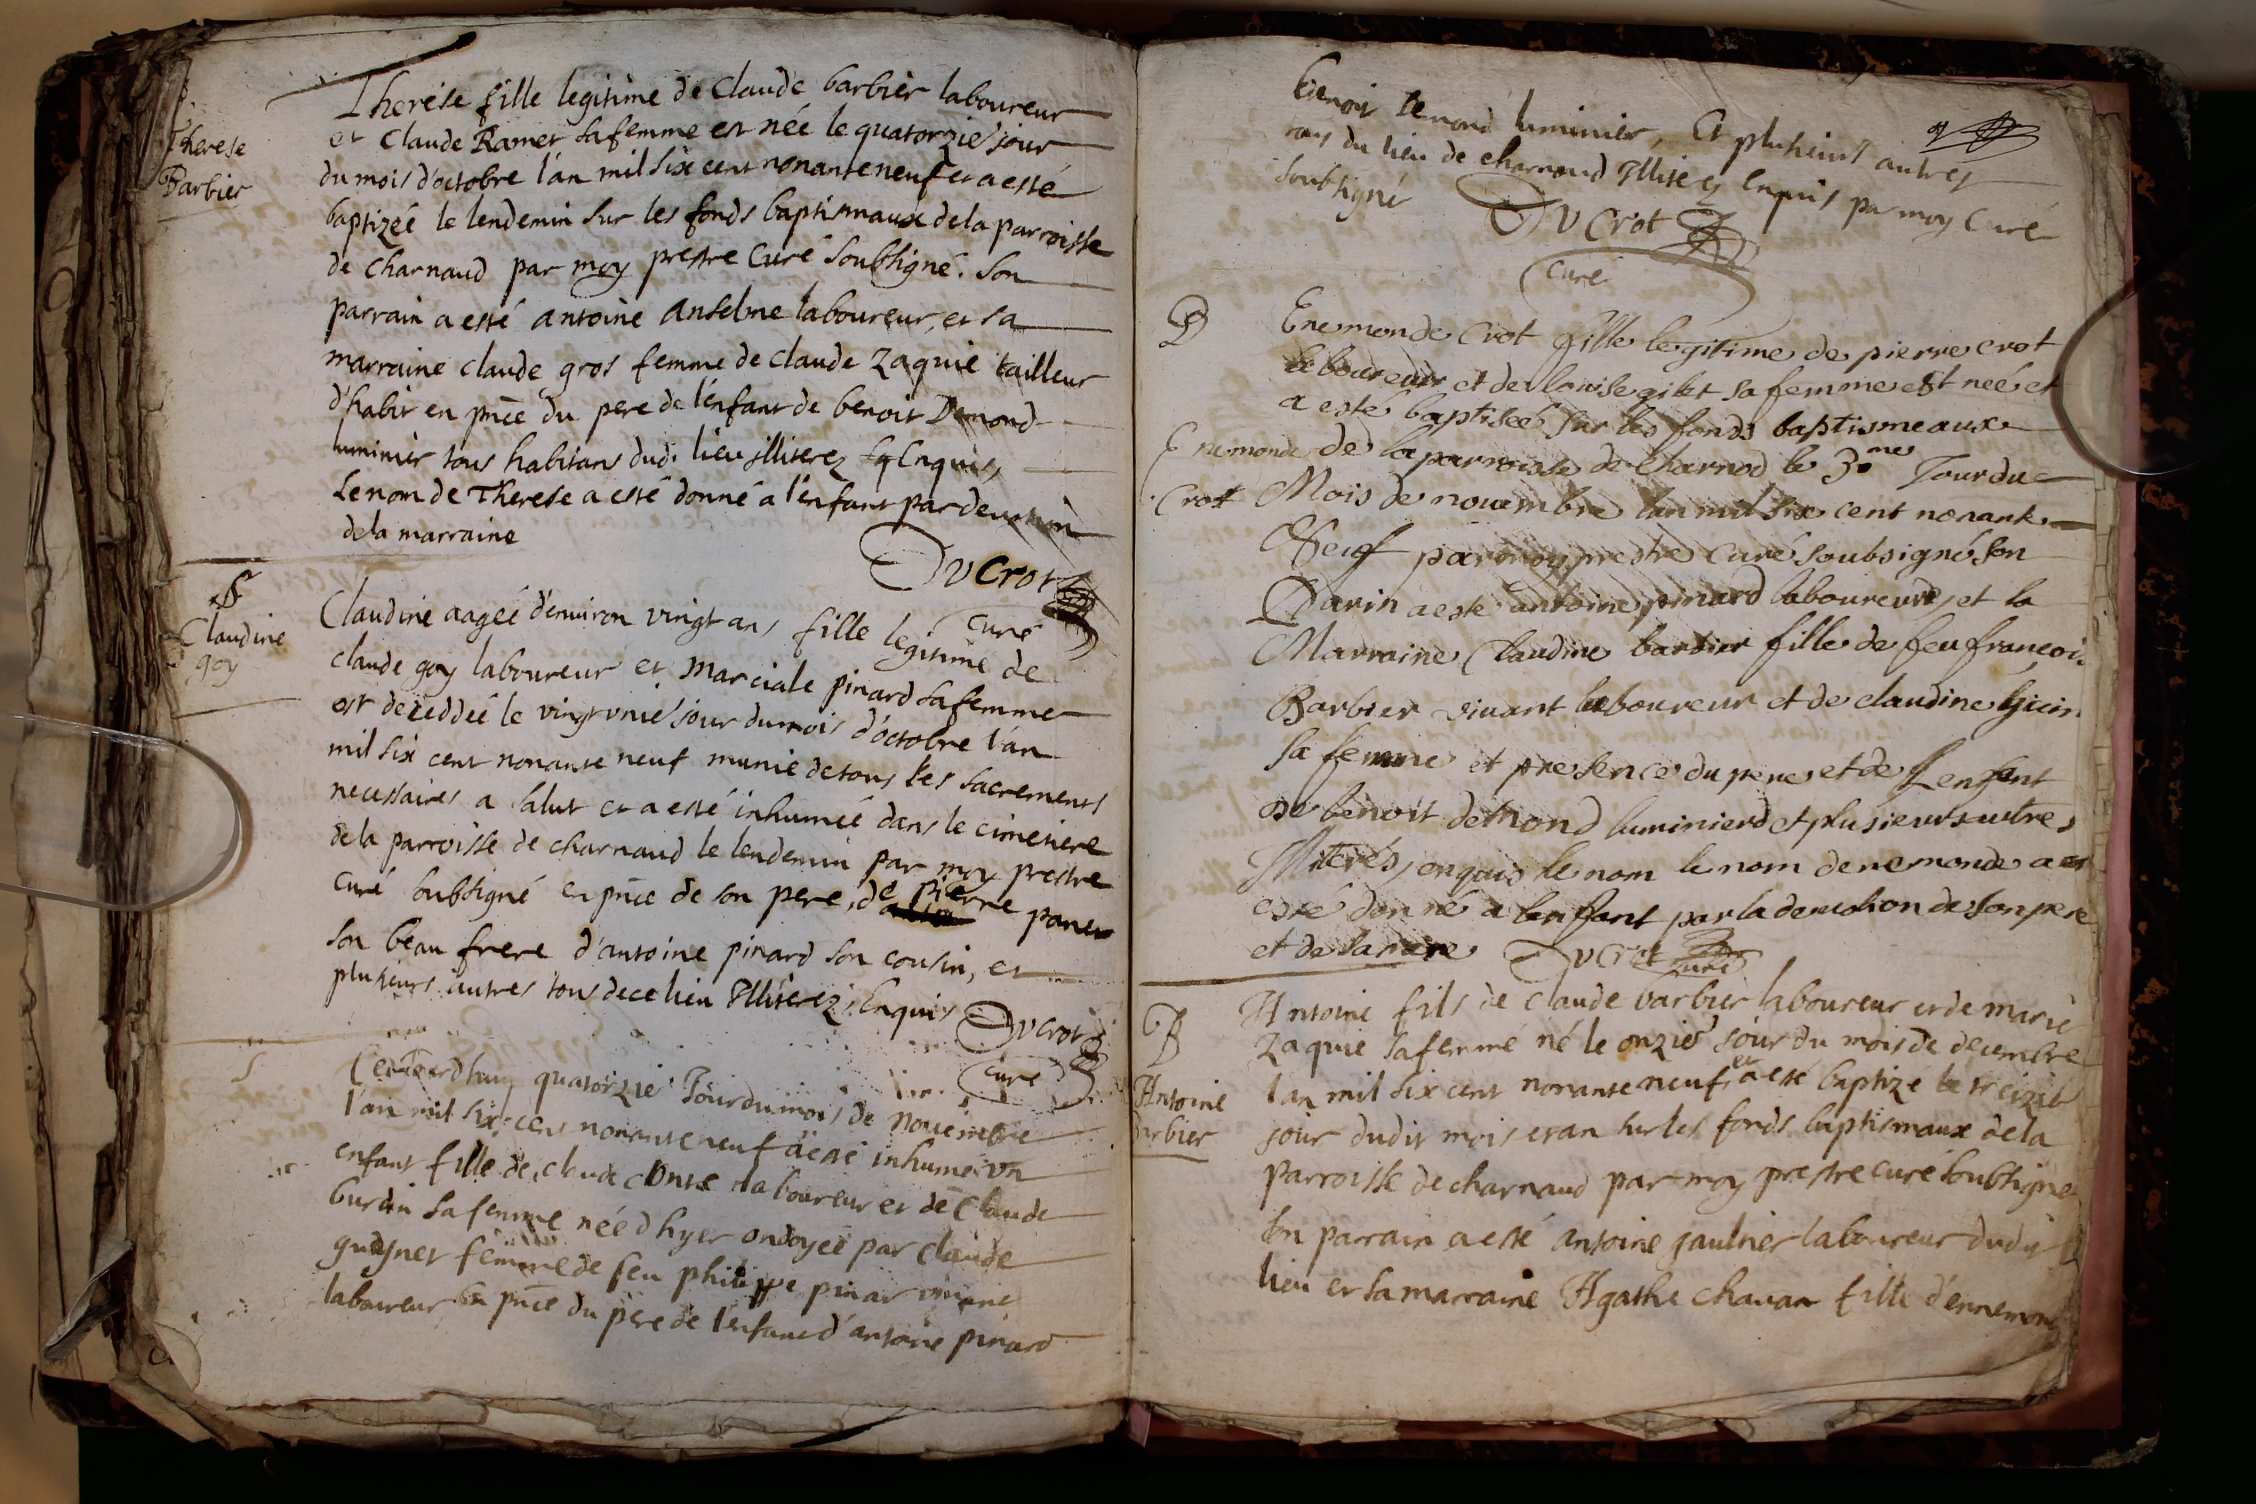 Therese
Barbier
Therese fille legitime de Claude barbier laboureur
et Claude Ramet sa femme est née le quatorzie' jour
du mois d'octobre l'an mil six cent nonante neuf et a esté
baptizéé le lendemin sur les fonds baptismaux de la parroisse
de Charnaud par moy prestre Curé soubsigné. Son
parrain a esté antoine Anselme laboureur, et sa
marraine claude gros femme de claude Zaquie tailleur
d'habit en pñce du pere de l'enfant de benoit Demond
luminier tous habitans dud. lieu illiterez Enquis,
Le nom de Therese a esté donné a l'enfant par devotion
de la marraine
DuCrot
curé
S
Claudine
goy
Claudine aagéé d'environ vingt ans fille legitime de
claude goy laboureur et Marciale pinard sa femme
est deceddéé le vingt unie' jour du mois d'octobre l'an
mil six cent nonante neuf munie de tous les sacrements
necessaires a salut et a esté inhuméé dans le cimetiere
de la parroisse de charnaud le lendemin par moy prestre
curé soubsigné en pñce de son pere, de pierre panet
son beau frere d'antoine pinard son cousin, et
plusieurs autres tous de ce lieu Illiterez, Enquis
DuCrot
curé
S
quatorzie' Jour du mois de Novembre
l'an mil six cens nonante neuf a esté inhumé un
enfant fille de claude laboureur et de Claude
burdin sa femme née d'hyer ondoyéé par claude
femme de feu philippe pinar vivant
laboureur En pñce du pere de l'enfant d'antoine pinard
benoit Demond luminier, Et plusieurs autres
tous du lieu de charnaud Illiterez Enquis par moy Curé
soubsigné
DuCrot
curé
B
Enemonde
Crot
Enemonde Crot fille legitime de pierre crot
laboureur et de louise gilet sa femme est neé et
a esté baptiseé sur les fonds baptismeaux
de la parroisse de Charnod le 3.me Jour du
Mois de novembre l'an mil six cent nonante
Neuf par moy prestre curé soubsigné Son
Parin a esté antoine pinard laboureur, et la
Marraine Claudine barbier fille de feu françois
Barbier vivant laboureur et de claudine
sa femme et presence du pere et de Lenfent
de benoit demond luminierd et plusieurs autres
Illiterés, enquis le nom le nom de nemonde a
esté donné a lenffant par la devotion de son pere
et de sa mere DuCrot
curé
B
Antoine
barbier
Antoine fils de Claude barbier laboureur et de marie
Zaquie sa femme né le onzie' jour du mois de decembre
l'an mil six cent nonante neuf, et a esté baptizé le treizie
jour dudit mois et an sur les fonds baptismaux de la
Parroisse de charnaud par moy prestre curé soubsigné
son parrain a esté antoine gaultier laboureur dudit
lieu et sa marraine Agathe chavan fille d'ennemond